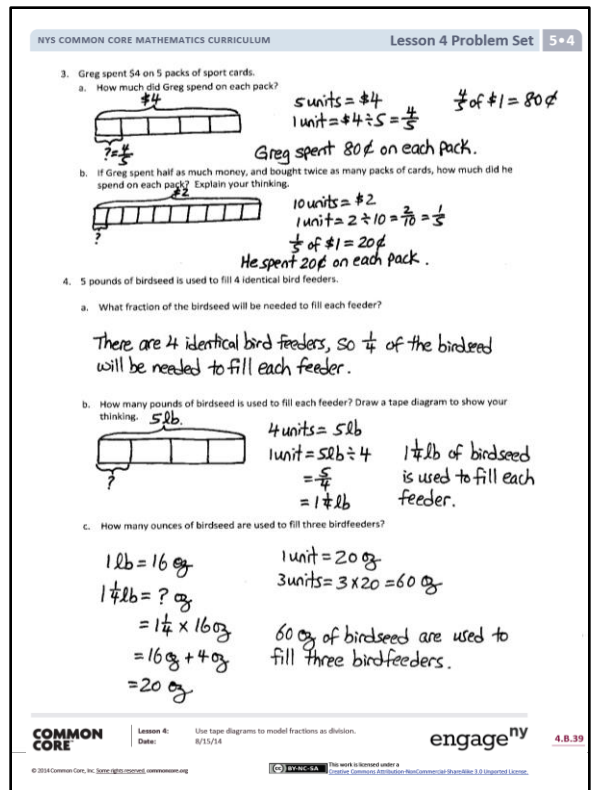 NYS COMMON CORE MATHEMATICS CURRICULUM
Lesson 4 Problem Set 5•4
3. Greg spent $4 on 5 packs of sport cards.
a. How much did Greg spend on each pack?
$4
?=4/5
5 units = $4
1 unit = $4 ÷ 5 = 4/5
4/5 of $1 = 80¢
Greg spent 80¢ on each pack.
b. If Greg spent half as much money, and bought twice as many packs of cards, how much did he
spend on each pack? Explain your thinking.
$2
?
10 units = $2
1 unit = 2 ÷ 10 = 2/10 = 1/5
1/5 of $1 = 20¢
He spent 20¢ on each pack.
4. 5 pounds of birdseed is used to fill 4 identical bird feeders.
a. What fraction of the birdseed will be needed to fill each feeder?
There are 4 identical bird feeders, so 1/4 of the birdseed
will be needed to fill each feeder.
b. How many pounds of birdseed is used to fill each feeder? Draw a tape diagram to show your
thinking.
5 lb.
?
4 units = 5 lb
1 unit = 5 lb ÷ 4
= 5/4
= 1 1/4 lb
1 1/4 lb of birdseed
is used to fill each
feeder.
c. How many ounces of birdseed are used to fill three birdfeeders?
1 lb = 16 oz
1 1/4 lb = ? oz
= 1 1/4 × 16 oz
= 16 oz + 4 oz
= 20 oz
1 unit = 20 oz
3 units = 3 × 20 = 60 oz
60 oz of birdseed are used to
fill three birdfeeders.
COMMON CORE
Lesson 4: Use tape diagrams to model fractions as division.
Date: 8/15/14
engage ny
4.B.39
© 2014 Common Core, Inc. Some rights reserved. commoncore.org
CC BY-NC-SA
This work is licensed under a
Creative Commons Attribution-NonCommercial-ShareAlike 3.0 Unported License.